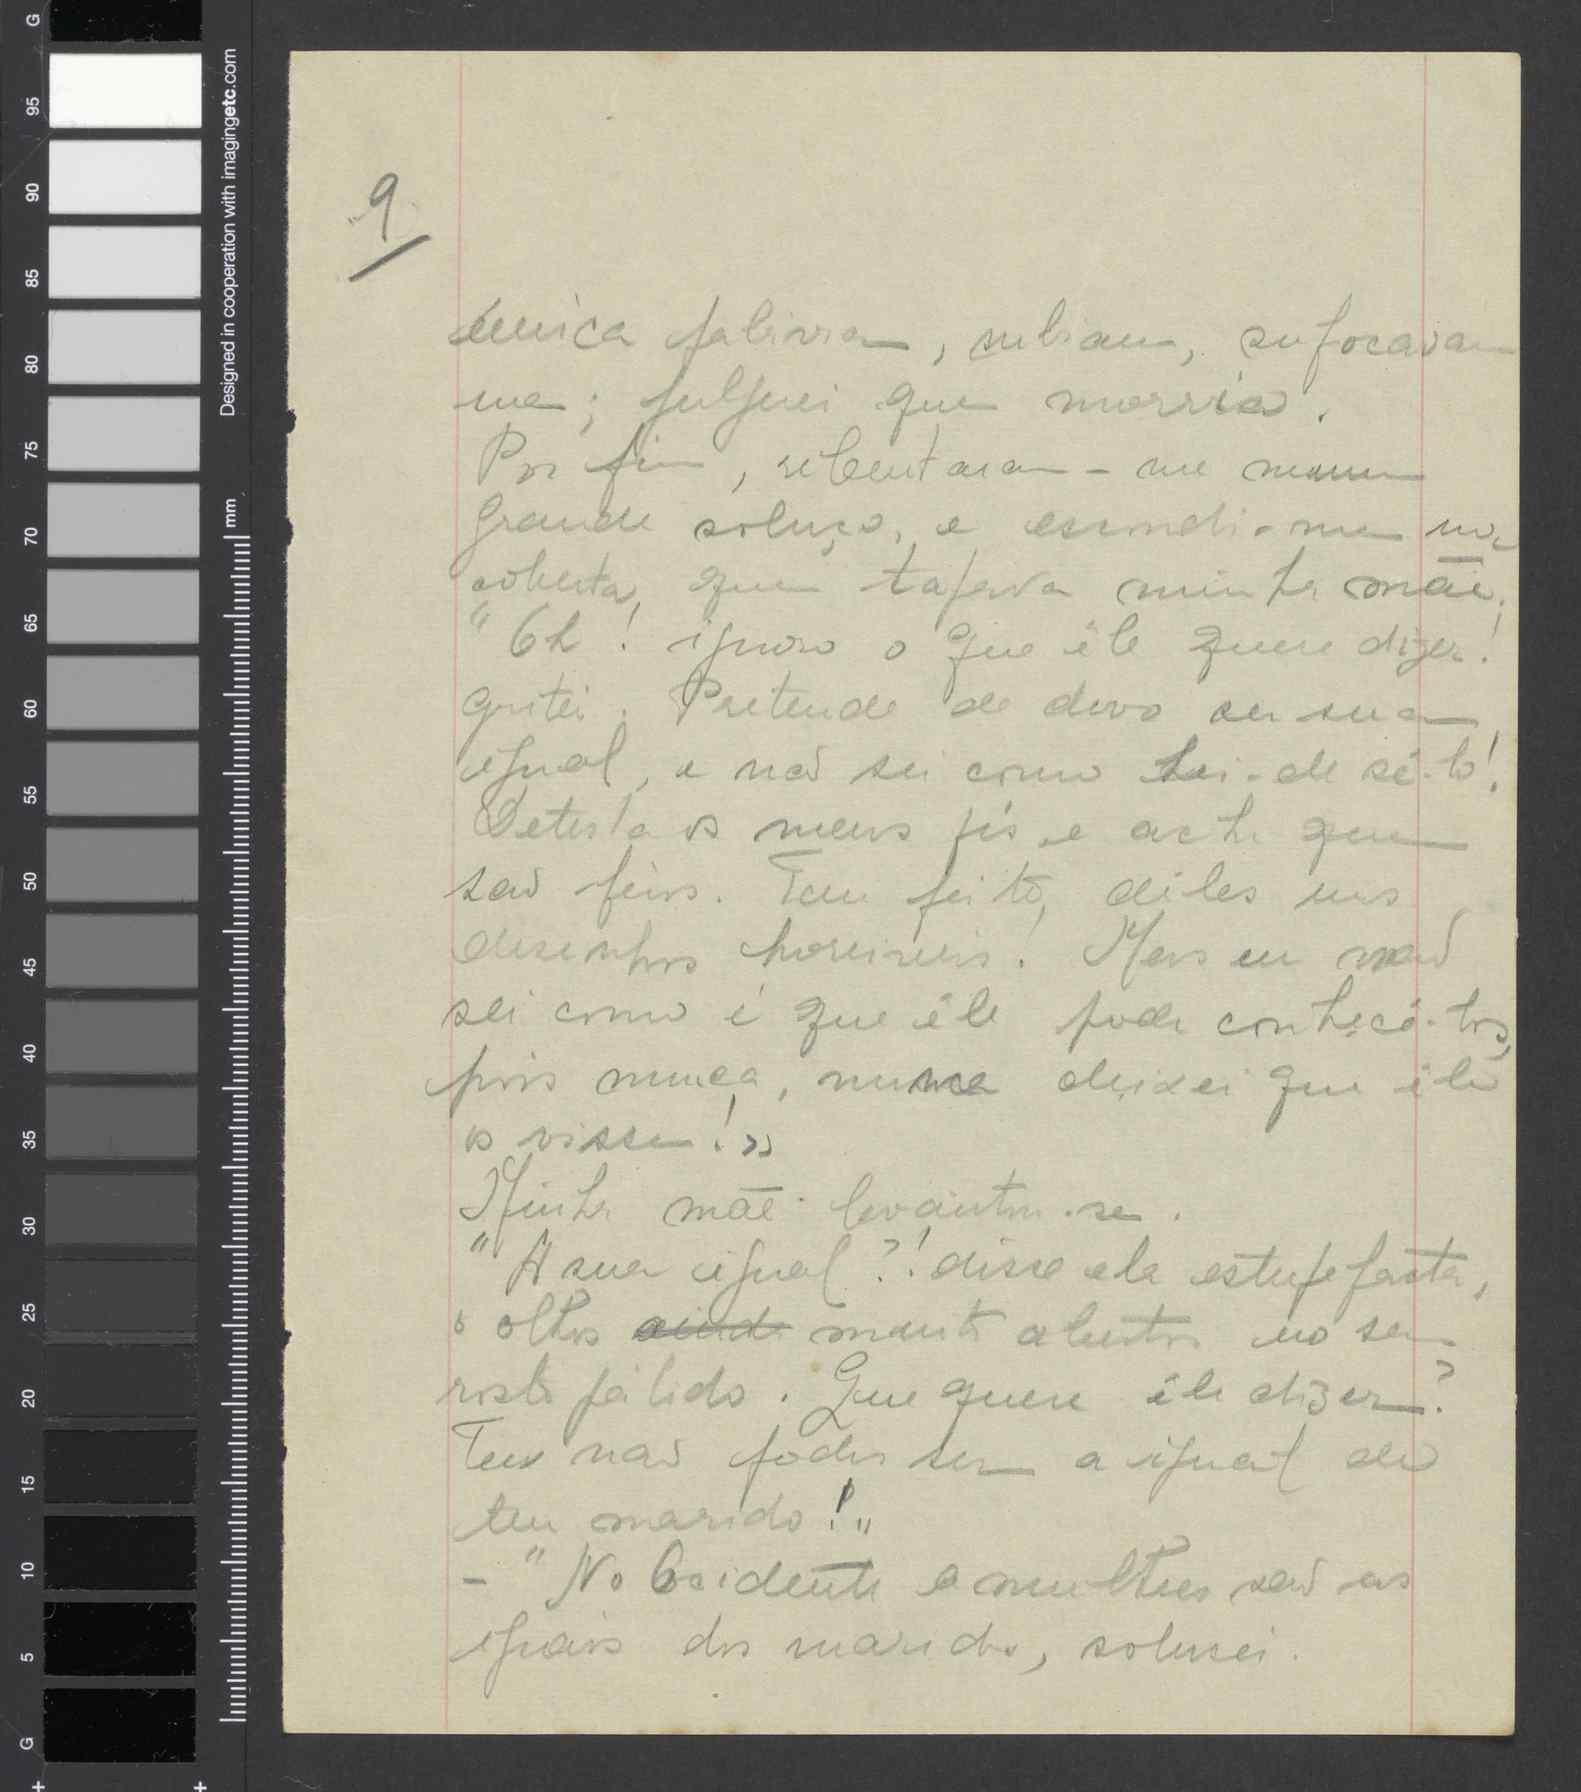 9
única saliva, subiam, sufocavam
me; julguei que morria.
Por fim, rebentaram-me num
grande soluço, e escondi-me na
coberta, que tapava minha mãe.
"Oh! ignoro o que êle quere dizer!
gritei. Pretende de devo ser sua
igual, e não sei como hei-de sê-lo!
Detesta os meus pés e acha que
são feios. Tem feito, dêles uns
desenhos horriveis! Mas eu não
sei como é que êle pode conhecê-los,
pois nunca, nunca deixei que êle
os visse!"
Minha mãe levantou-se.
"A sua igual?! disse ela estupefacta,
os olhos ainda muito abertos no seu
rosto pálido. Que quere êle dizer?
Tu não podes ser a igual de
teu marido!"
- "No Ocidente as mulheres são as
iguais dos maridos, solucei.
G 95 90 85 80 75 70 65 60 55 50 45 40 35 30 25 20 15 10 5 G
Designed in cooperation with imagingetc.com
mm